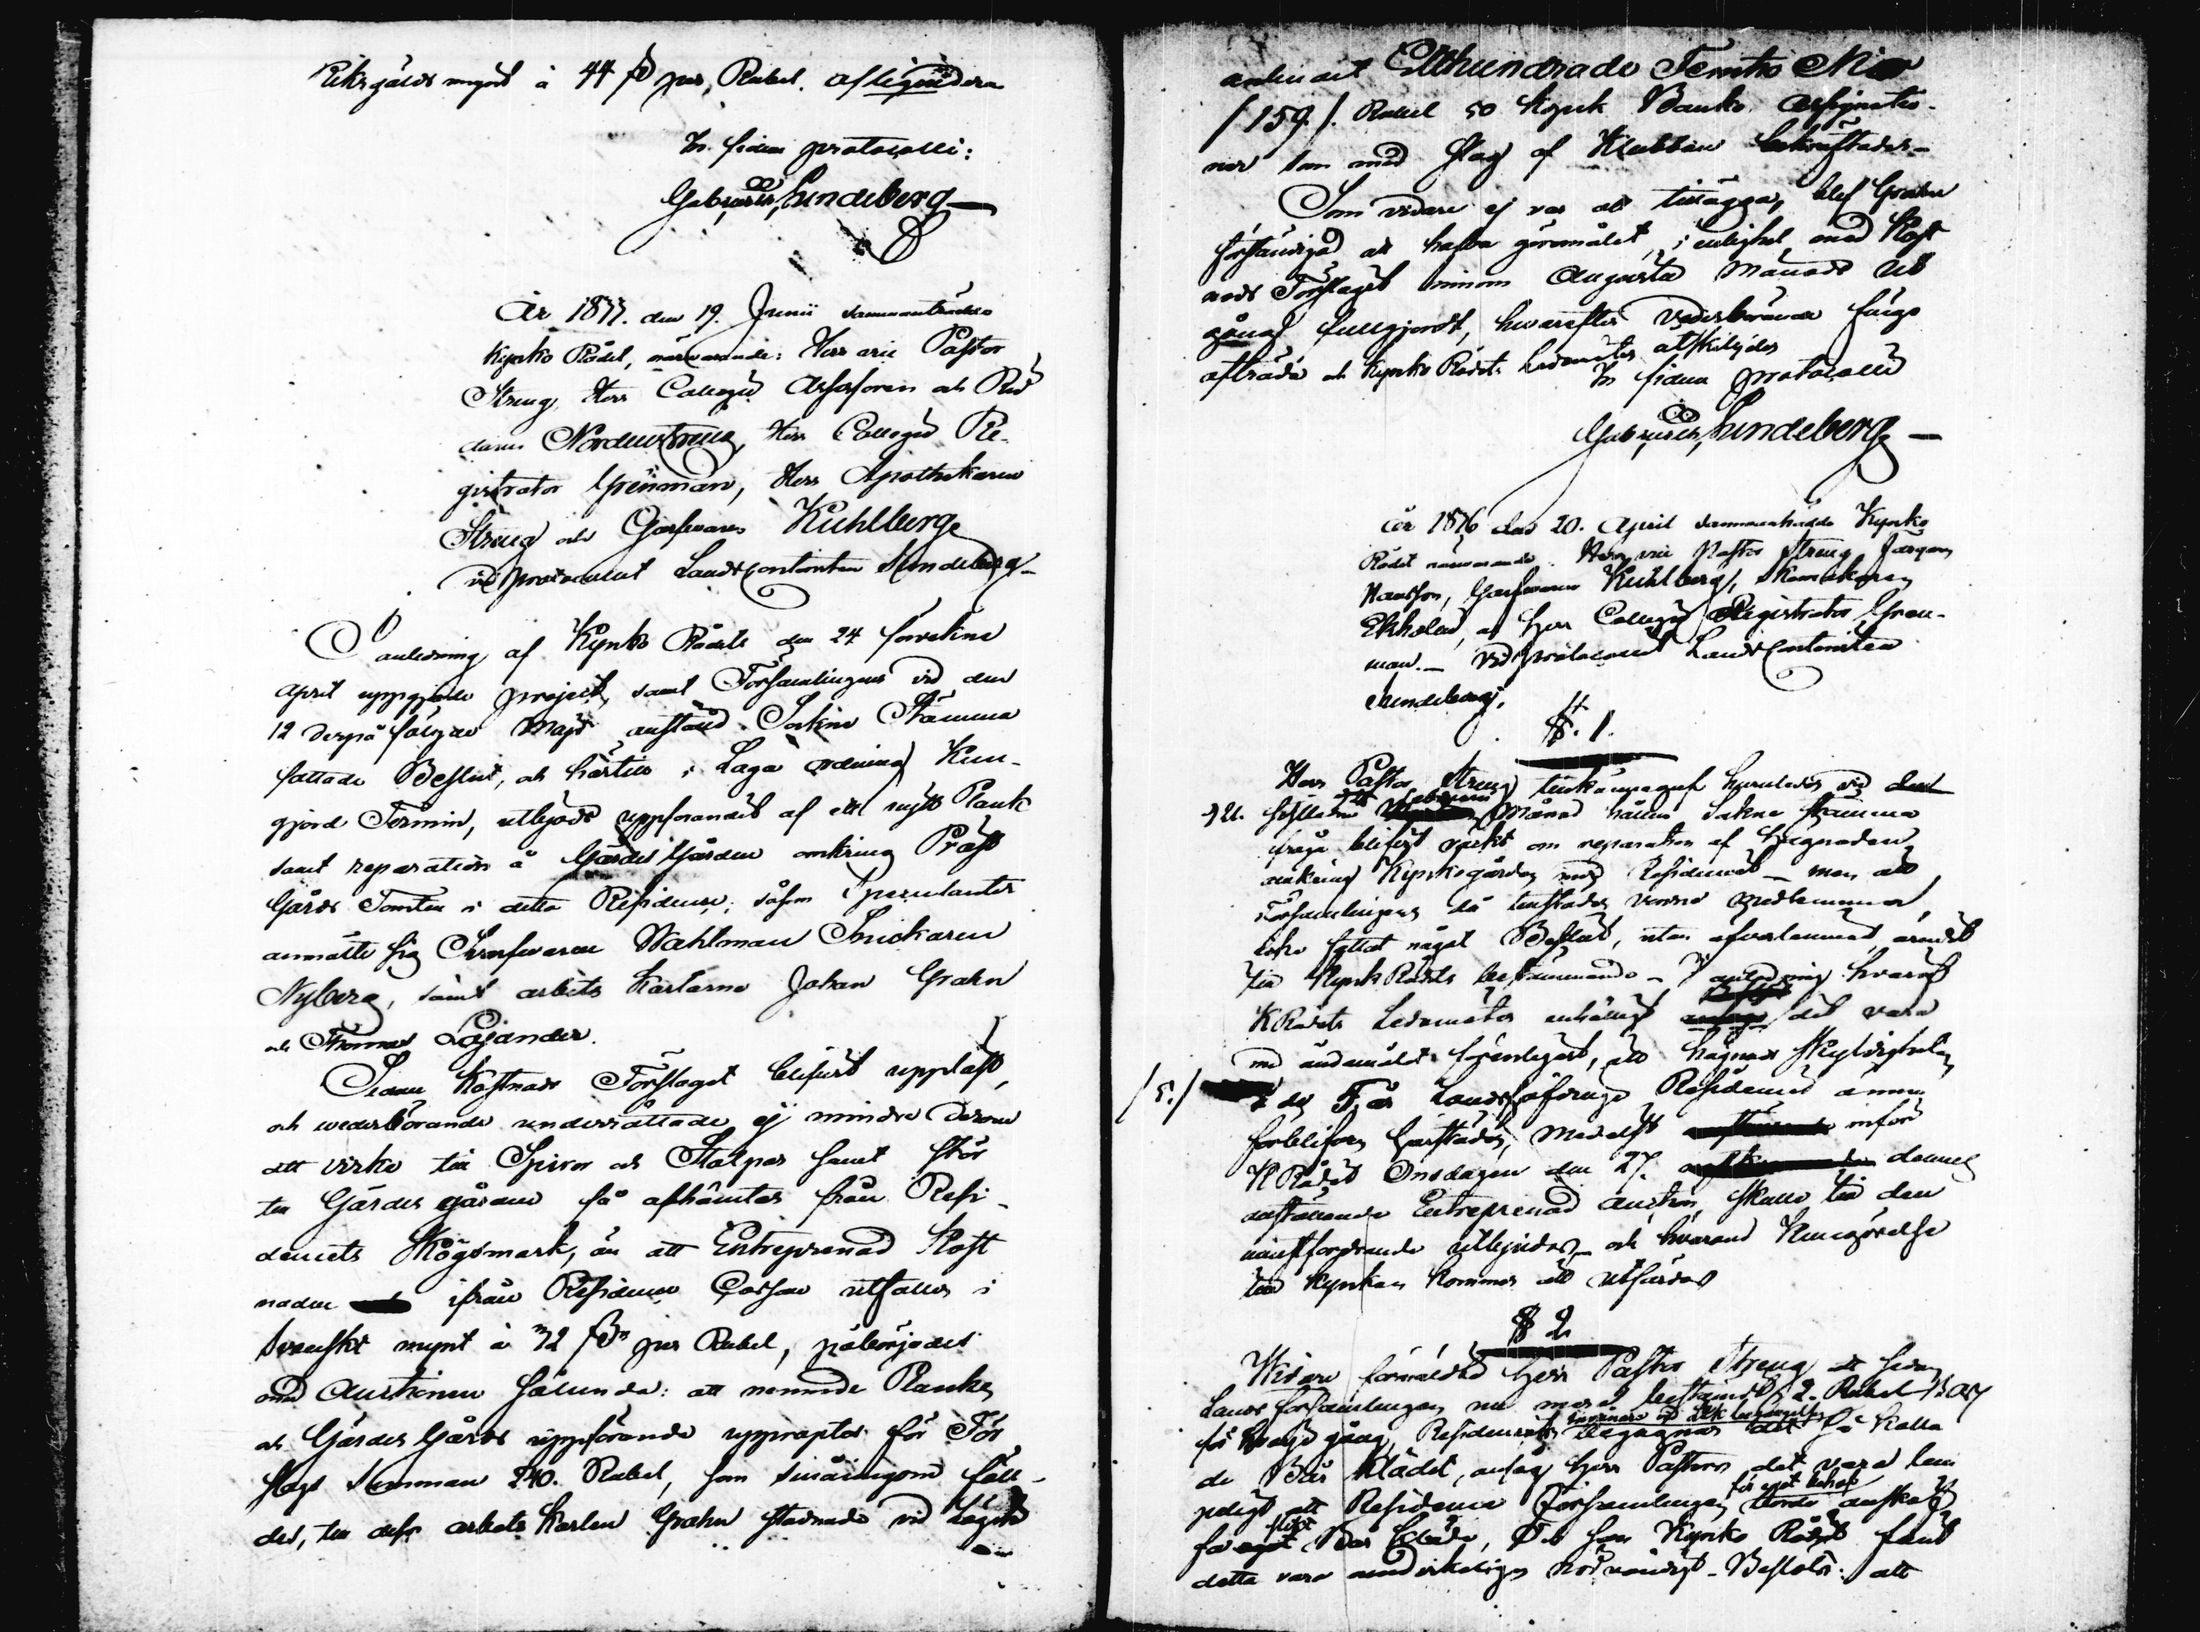 Riksgälds mynt à 44 ß per Rubel.
In fidem protocolli:
Gabriel Lundeberg
År 18 den 19. Junii sammanträdde
Kyrko Rådet, närvarande: Herr vice Pastor
Streng, Herr Collegii Assessoren och Rid
daren Nordenstreng, Herr Collegii Re-
gistrator Grenman, Herr Apothekaren
Streng och Garfvaren Kuhlberg
vid protocollet Landtcontoristen Lundeberg
I anledning af Kyrko Rådets den 24 sistledne
April uppgjorde project, samt Församlingens vid den
12 derpå följde Maji anstäld Sockne Stämma
fattade Beslut, och härtill i Laga ordning Kun-
gjord Termin, utbjöds uppförandet af ett nytt Plank
samt reparation å Gärdes Gården omkring Präst
Gårds Tomten i detta Residence; såsom Speculanter
anmälte sig Garfvaren Wahlman Snickaren
Nyberg, samt arbets karlarne Johan Grahn
och Thomas Lojander.
Sedan Kostnads Förslaget blifvit uppläst,
och wederbörande underrättade ej mindre derom
att virke till Spiror och Stolpar samt stör
till Gärdes gården få afhämtas från Resi-
dencets Skogsmark, än att Entreprenad Kost
naden ifrån Residence Cassan utfalles i
Svenskt mynt à 72 ß per Rubel, påbörjades
med Auctionen sålunda: att nämnde Plank
och Gärdes Gårds uppförande upproptes för För
slags Summan 240. Rubel, som småningom fäll-
des, till dess arbets karlen Grahn stadnade vid Lägsta
anbudet Etthundrade Femtio Nio
/159/. Rubel 50 kopek Banko Assignatio-
ner som med slag af Klubban bekräftades.
Som vidare ej var att tillägga, blef Grahn
förständigad att hafva göromålet, i enlighet med Kost
nads Förslaget innom Augusti Månads ut
gång fullgjordt, hvarefter vederbörande fingo
afträda och Kyrko Rådets Ledamöter åtskiljdes
In fidem protocolli
Gabriel Lundeberg
År 18 den 20. April sammanträdde Kyrko
Rådet närvarande Herr vice Pastor Streng,
Garfvaren Kuhlberg, Skomakaren
Ekholm, och Herr Collegii Registrator Gren-
man. Vid protocollet Landtcontoristen
Lundeberg.
§. 1.
Herr Pastor Streng huruledes vid
21. Månad hållne Sokne stämma
fråga blifvit väckt om reparation af hägnaden
omkring Kyrkogården med Residencet – men att
Församlingens då tillstädes varne medlemmar
icke fattat något Beslut, utan öfverlemnat ärendet
till Kyrko Rådets bestämmande – I anledning hvaraf
K Rådets Ledamöter enhälligt det vara
med ändamålet förenligast, att hägnads skyldigheten
/5./
Landshöfdinge Residencet
medelst inför
K Rådet Onsdagen den 27. dennes
anställande Entreprenad Auction, skulle till den
minstfordrande utbjudas – och hvarom Kungörelse
till kyrkan kommer att utfärdas
§ 2
Widare förmälde Herr Pastor Streng att sedan
Lands församlingen nu mera bestämdt 2. Rubel
för hvarje gång, Residencets så kalla
de Bår Klädet, ansåg Herr Pastorn det vara lem
peligt att Residence Församlingen för eget behof borde anskaf
fa Bår kläde, Och som Kyrko Rådet fant
detta vara nödvändigt – Beslöts: att